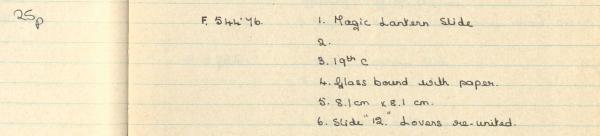 25p
F. 544'76. 1. Magic Lantern Slide
2.
3. 19th C
4. Glass bound with paper.
5. 8.1cm x 8.1 cm.
6. Slide "12." Lovers re-united.